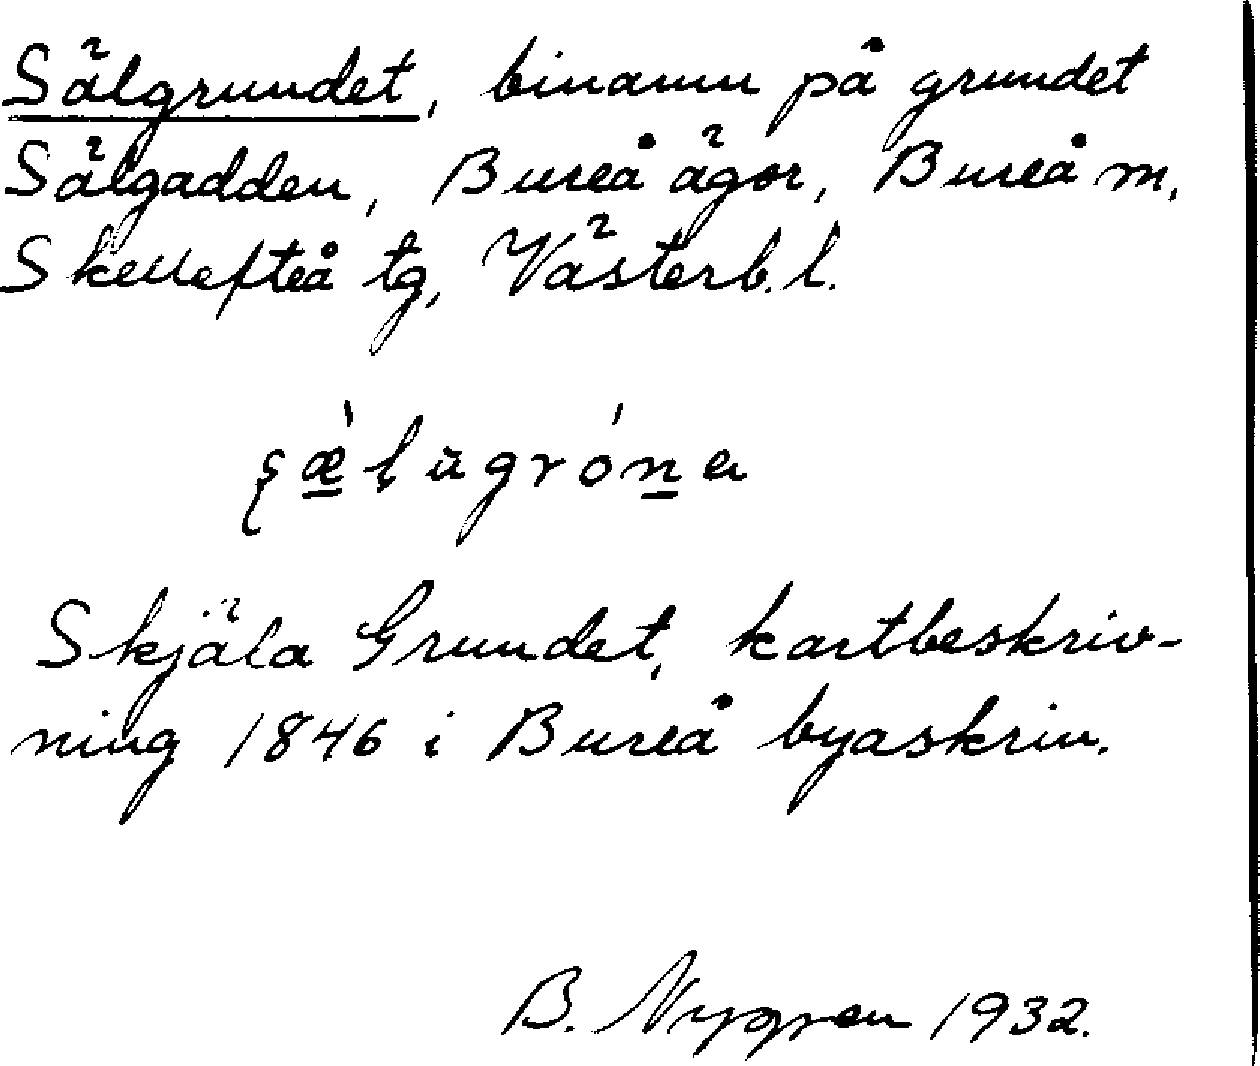 Sälgrundet, binamn på grundet
Sälgadden, Bureå ägor, Bureå m,
Skellefteå tg, Västerb. l.
Skjäla Grundet, kartbeskriv-
ning 1846 i Bureå byaskriv.
B. Nygren 1932.